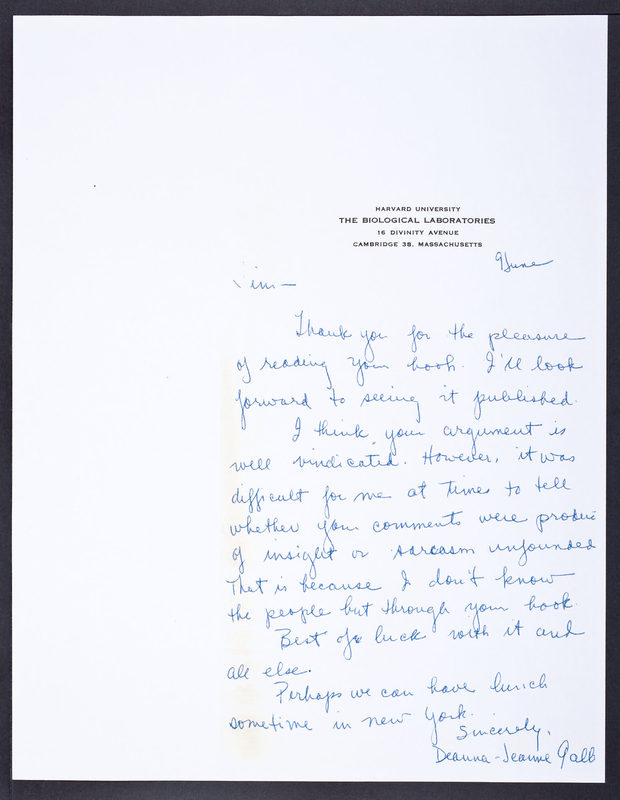 HARVARD UNIVERSITY
THE BIOLOGICAL LABORATORIES
16 DIVINITY AVENUE
CAMBRIDGE 38, MASSACHUSETTS
9 June
Jim —
Thank you for the pleasure
of reading your book. I'll look
forward to seeing it published.
I think your argument is
well vindicated. However, it was
difficult for me at times to tell
whether your comments were
of insight or sarcasm unfounded
That is because I don't know
the people but through your book.
Best of luck with it and
all else.
Perhaps we can have lunch
sometime in new york.
Sincerely,
Deanna-Jeanne